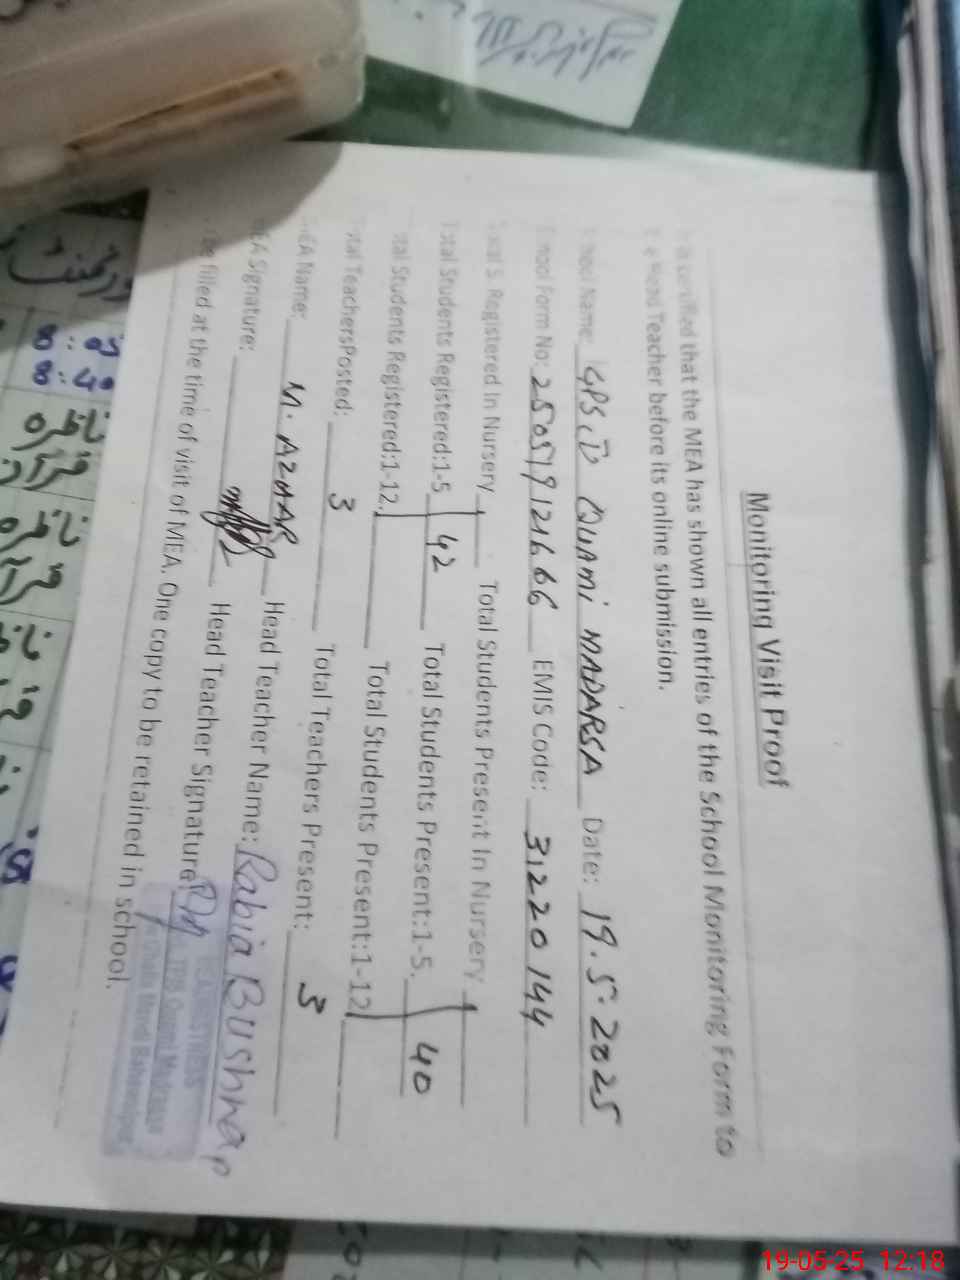 Monitoring Visit Proof
It is certified that the MEA has shown all entries of the School Monitoring Form to
the Head Teacher before its online submission.
School Name: GPS.D QUAMI MADARSA Date: 19.5.2025
School Form No: 25051912166 6 EMIS Code: 31220144
Total S. Registered In Nursery Total Students Present In Nursery
Total Students Registered:1-5 42 Total Students Present:1-5. 40
Total Students Registered:1-12. Total Students Present:1-12
Total TeachersPosted: 3 Total Teachers Present: 3
MEA Name: M. AZHAR Head Teacher Name: Rabia Bushra
MEA Signature: Head Teacher Signature:
To be filled at the time of visit of MEA. One copy to be retained in school.
HEADMISTRESS
8:05
8:40
ناظرہ
قرآن
ناظرہ
قرآن
19-05-25 12:18